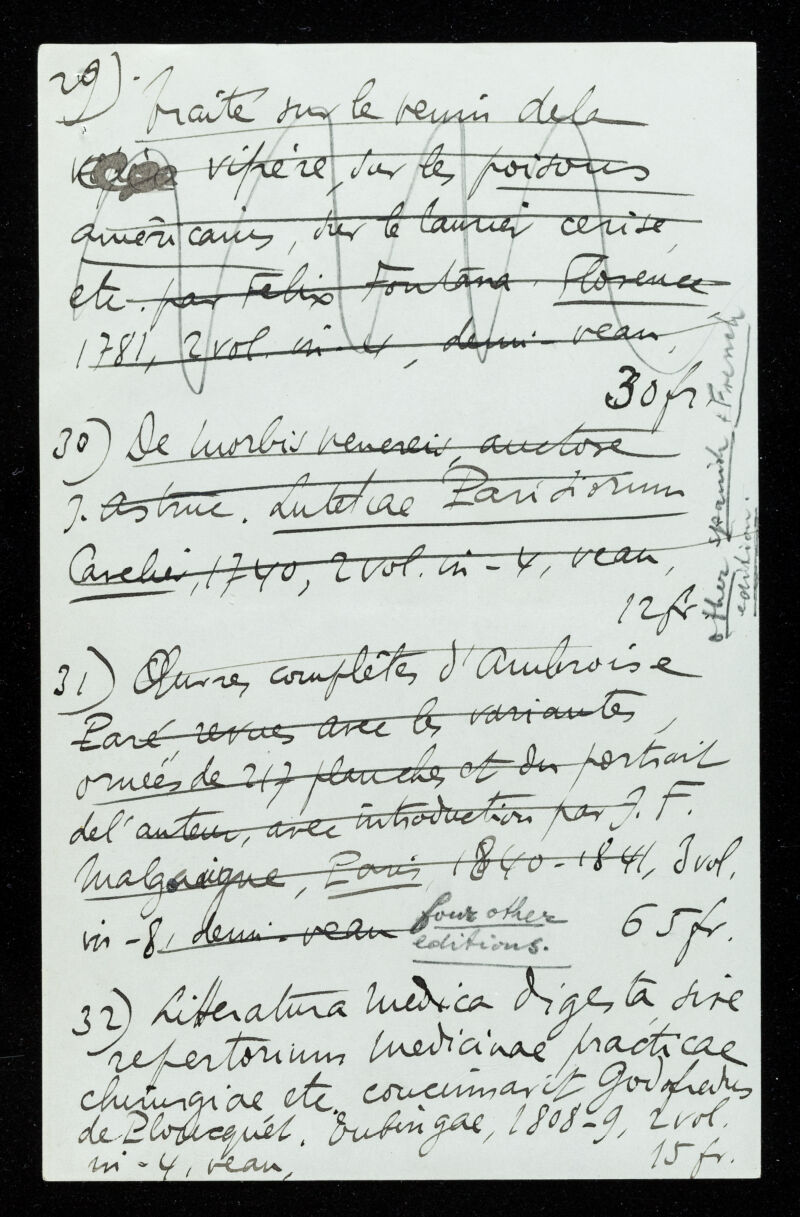 29)
Traité sur le venin dela
vipére, sur les poisons
américains, sur le laurier cerise,
etc. par Felix Fontana. Florence
1781, 2 vol. in-4, demi-veau,
30 fr.
30) De morbis venereis, auctore
J. Astruc. Lutetiae Parisiorum
Cavelier, 1740, 2 vol. in-4, veau,
12 fr
other spanish + French
edition.
31) Œuvres complètes d'Ambroise
Paré, revues avec les variantes,
ornées de 217 planches et du portrait
del'auteur, avec introduction par J. F.
Malgaigne, Paris, 1840-1841, 3 vol.
in-8, demi-veau 65 fr.
four other
editions.
32) Litteratura medica digesta, sive
repertorium medicinae practicae
chirurgiae etc. concinnavit Godofredus
de Ploucquét. Tubingae, 1808-9, 2 vol.
in-4, veau, 15 fr.